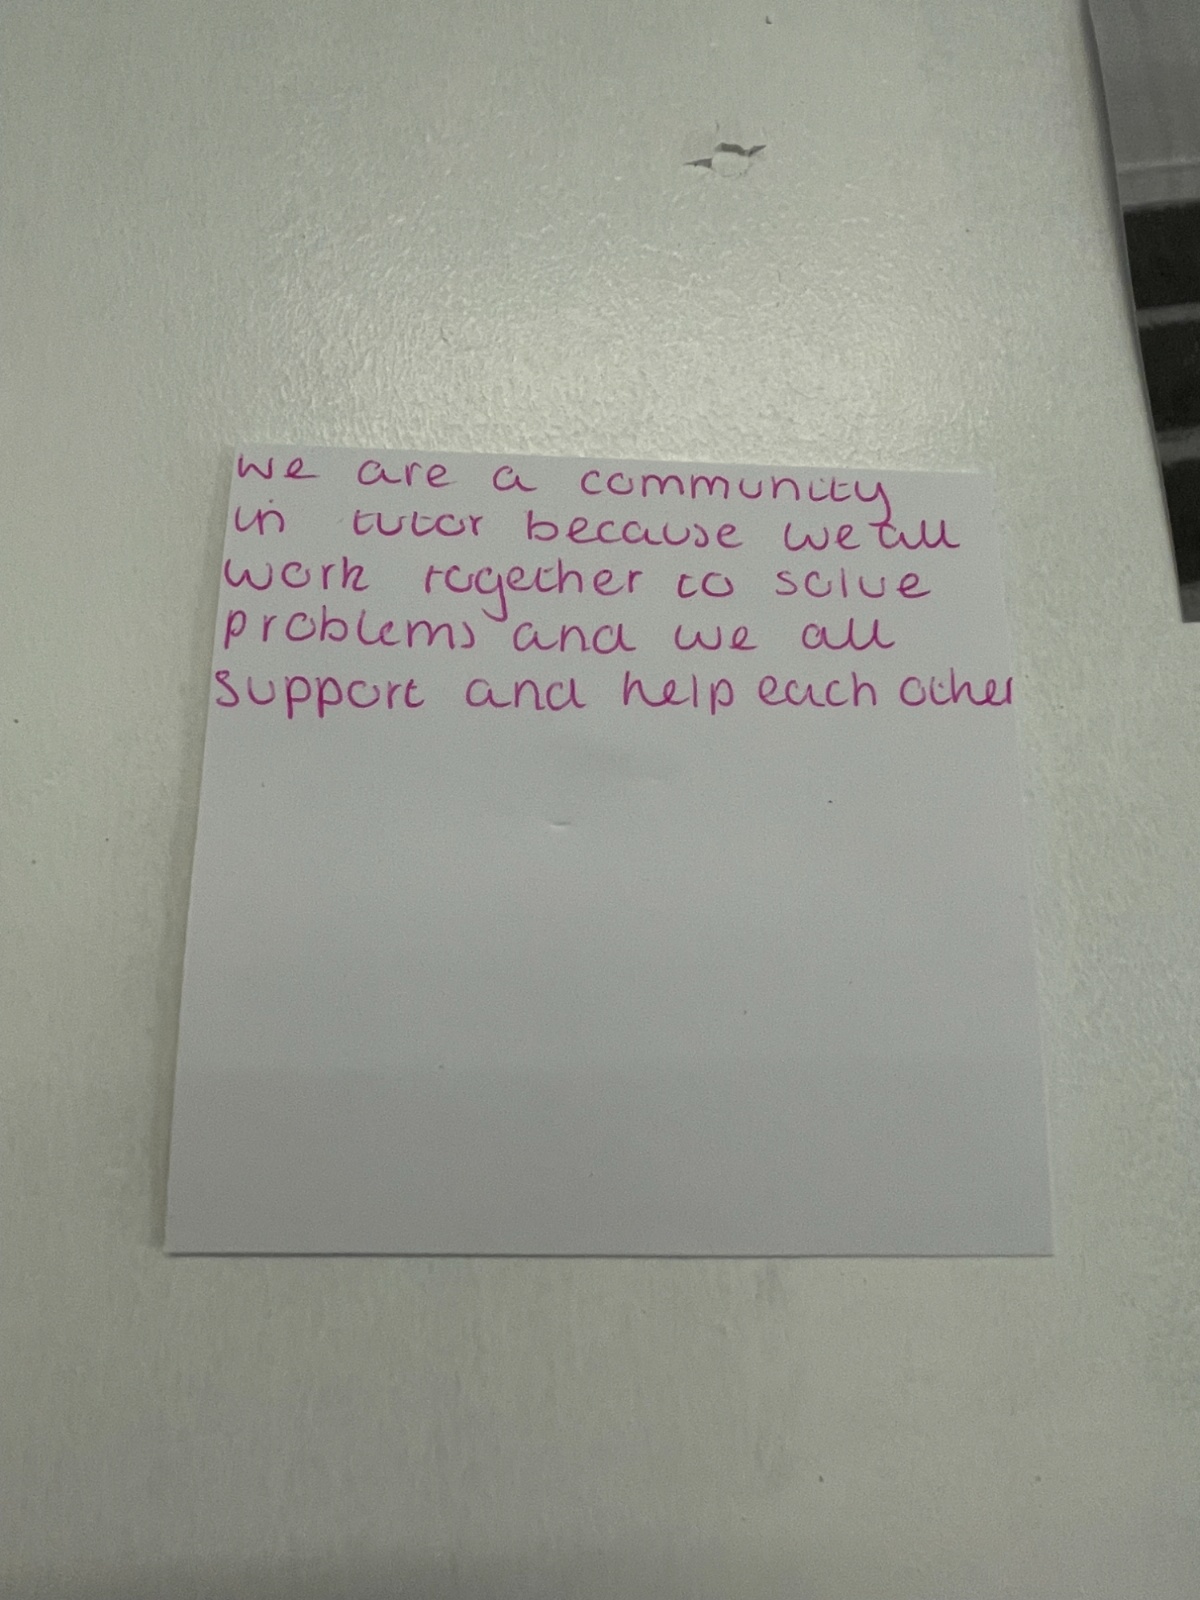 we are a community
in tutor because we all
work together to solve
problems and we all
support and help each other